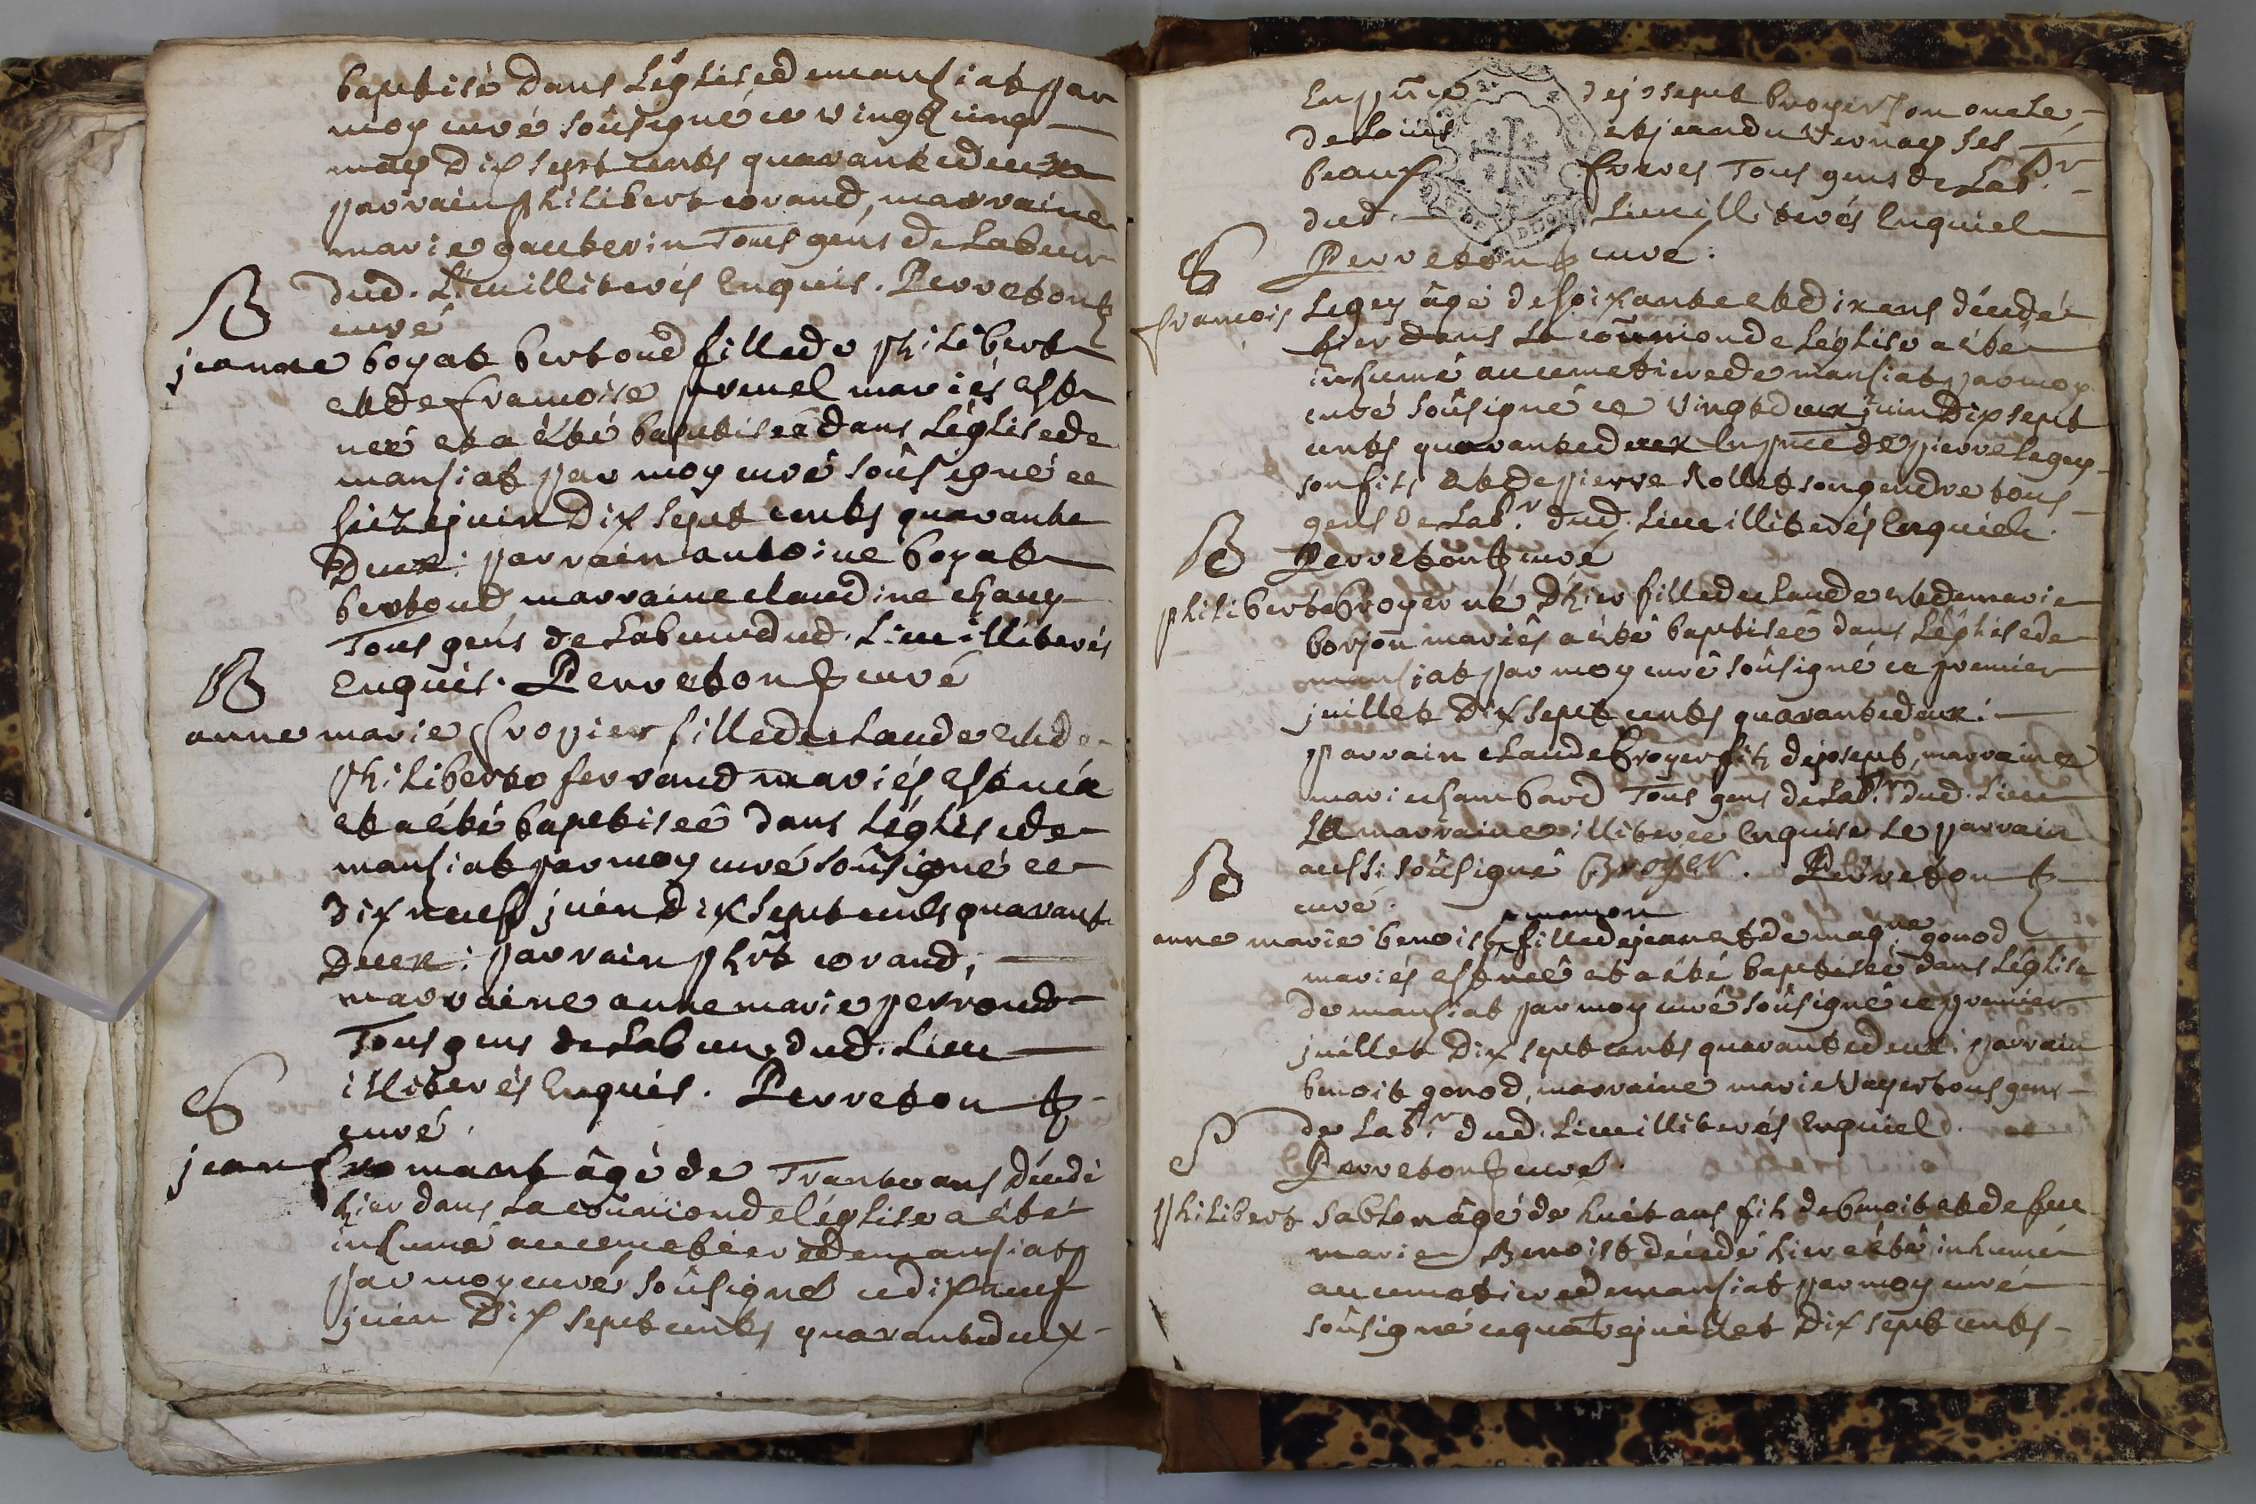 baptisé dans Léglise de mansiat par
moy curé soûsigné ce vingt cinq
may dix sept cents quarante deux
parrain philibert corand, marraine
marie gauterin Tous gens de Labeur
dud. Lieu illiterés Enquis. Perreton
curé
B
jeanne boyat bertoud fille de philibert
et de francoise pruuel mariés est
neé et a été baptiseé dans Léglise de
mansiat par moy curé soûsigné ce
seize juin Dix sept cents quarante
Deux: parrain antoine boyat
bertoud marraine claudine chany
Tous gens de Labeur dud. Lieu illiterés
Enquis. Perreton curé
B
anne marie Cropier fille de claude et de
philiberte ferrand mariés est neé
et a été baptiseé dans Léglise de
mansiat par moy curé soûsigné ce
dix neuf juin dix sept cents quarante
Deux: parrain phbt corand,
marraine anne marie perroud
Tous gens de Labeur dud. Lieu
illiterés Enquis. Perreton
curé
S
jean fromant âgé de Trante ans décédé
hier dans La coûnion de léglise a été
inhumé au cemetiere de mansiat
par moy curé soûsigné ce dix neuf
juin Dix sept cents quarante deux
En pnce de joseph broyer son oncle
de Louis et jean du Vernay ses
beaux freres Tous gens de Labr
dud. Lieu illiterés Enquiel
Perreton curé:
S
francois Legey âgé de soixante et dix ans décédé
hier dans La coûnion de Léglise a été
inhumé au cemetiere de mansiat par moy
curé soûsigné ce vingt deux juin Dix sept
cents quarante deux En pnce de pierre Legey
son fils et de pierre Rollet son gendre tous
gens de Labr dud. Lieu illiterés Enquiel.
Perreton curé
B
philiberte broyer né d'hier fille de claude et de marie
borjon mariés a été baptiseé dans Léglise de
mansiat par moy curé soûsigné ce premier
juillet Dix sept cents quarante deux:
parrain claude broyer fils de joseph, marraine
marie chambard Tous gens de Labr dud. Lieu
La marraine illitereé Enquise Le parrain
aussi soûsigné Broyer. Perreton
curé.
B
anne marie benoist fille de jean et de magne gonod
mariés est neé et a été baptiseé dans Léglise
de mansiat par moy curé soûsigné ce premier
juillet Dix sept cents quarante deux: parrain
benoit gonod, marraine marie Vayer tous gens
de Labr dud. Lieu illiterés Enquiel
Perreton curé.
S
philibert sablon âgé de huit ans fils de benoit et de feu
marie Benoist décédé hier a été inhumé
au cemetiere de mansiat par moy curé
soûsigné ce quatre juillet Dix sept cents